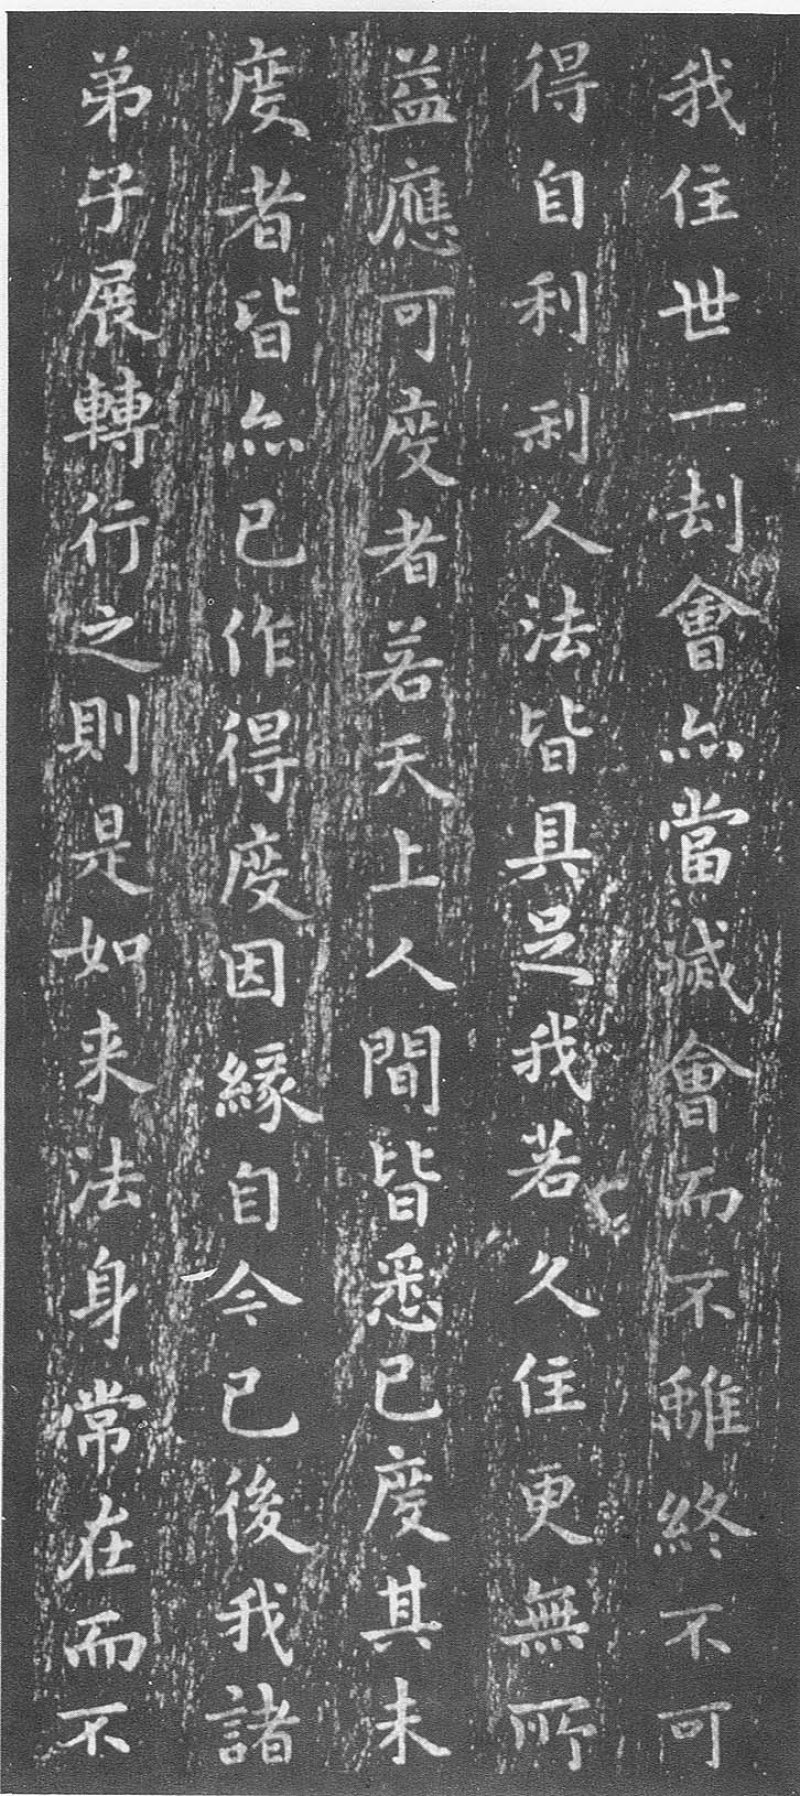 我住世一刦會亦當滅會而不離終不可
得自利利人法皆具足我若久住更無所
益應可度者若天上人間皆悉已度其未
度者皆亦已作得度因緣自今已後我諸
弟子展轉行之則是如来法身常在而不